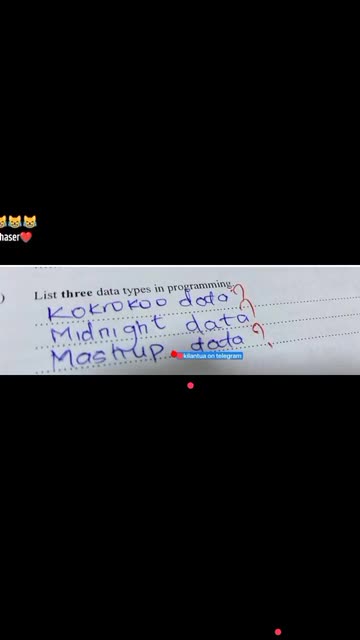 😹😹😹
haser❤️
) List three data types in programming.
Kokrokoo data
Midnight data
Mashup data
kilantua on telegram